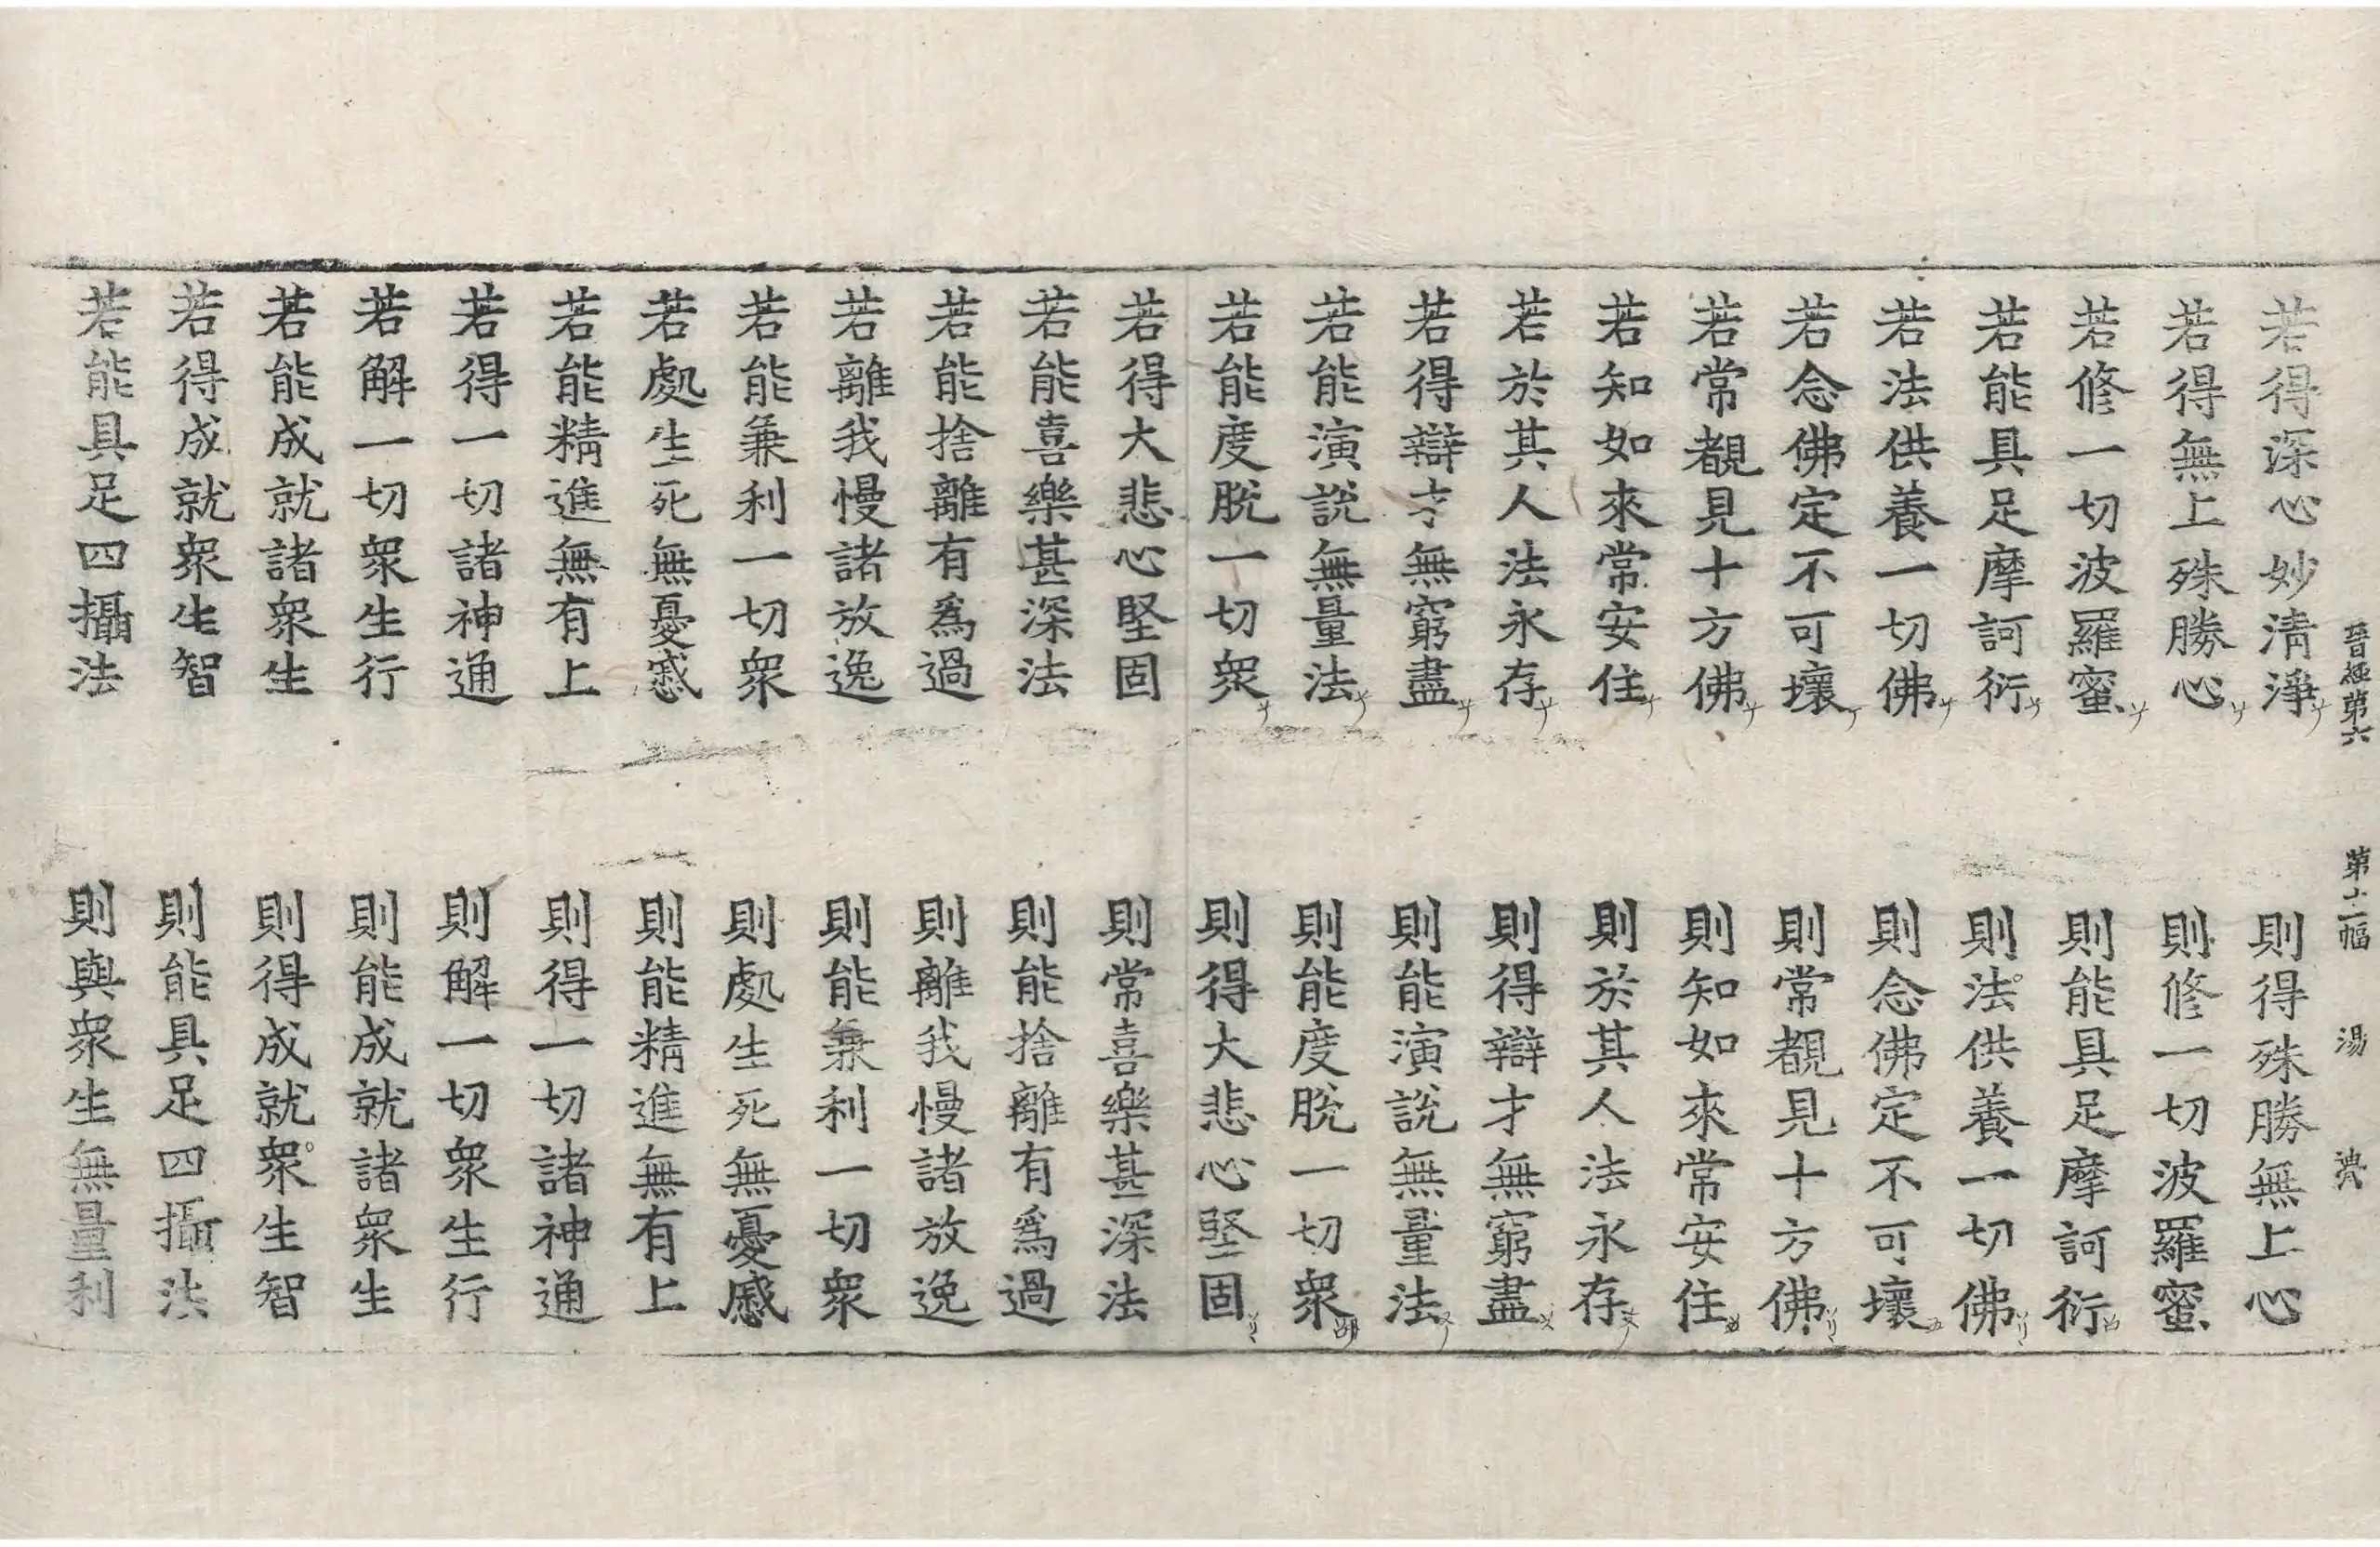 晉經第六 第十二幅 湯
若得深心妙淸淨 則得殊勝無上心
若得無上殊勝心 則修一切波羅蜜
若修一切波羅蜜 則能具足摩訶衍
若能具足摩訶衍 則法供養一切佛
若法供養一切佛 則念佛定不可壞
若念佛定不可壞 則常覩見十方佛
若常覩見十方佛 則知如來常安住
若知如來常安住 則於其人法永存
若於其人法永存 則得辯才無窮盡
若得辯才無窮盡 則能演說無量法
若能演說無量法 則能度脫一切衆
若能度脫一切衆 則得大悲心堅固
若得大悲心堅固 則常喜樂甚深法
若能喜樂甚深法 則能捨離有爲過
若能捨離有爲過 則離我慢諸放逸
若離我慢諸放逸 則能兼利一切衆
若能兼利一切衆 則處生死無憂慼
若處生死無憂慼 則能精進無有上
若能精進無有上 則得一切諸神通
若得一切諸神通 則解一切衆生行
若解一切衆生行 則能成就諸衆生
若能成就諸衆生 則得成就衆生智
若得成就衆生智 則能具足四攝法
若能具足四攝法 則與衆生無量利